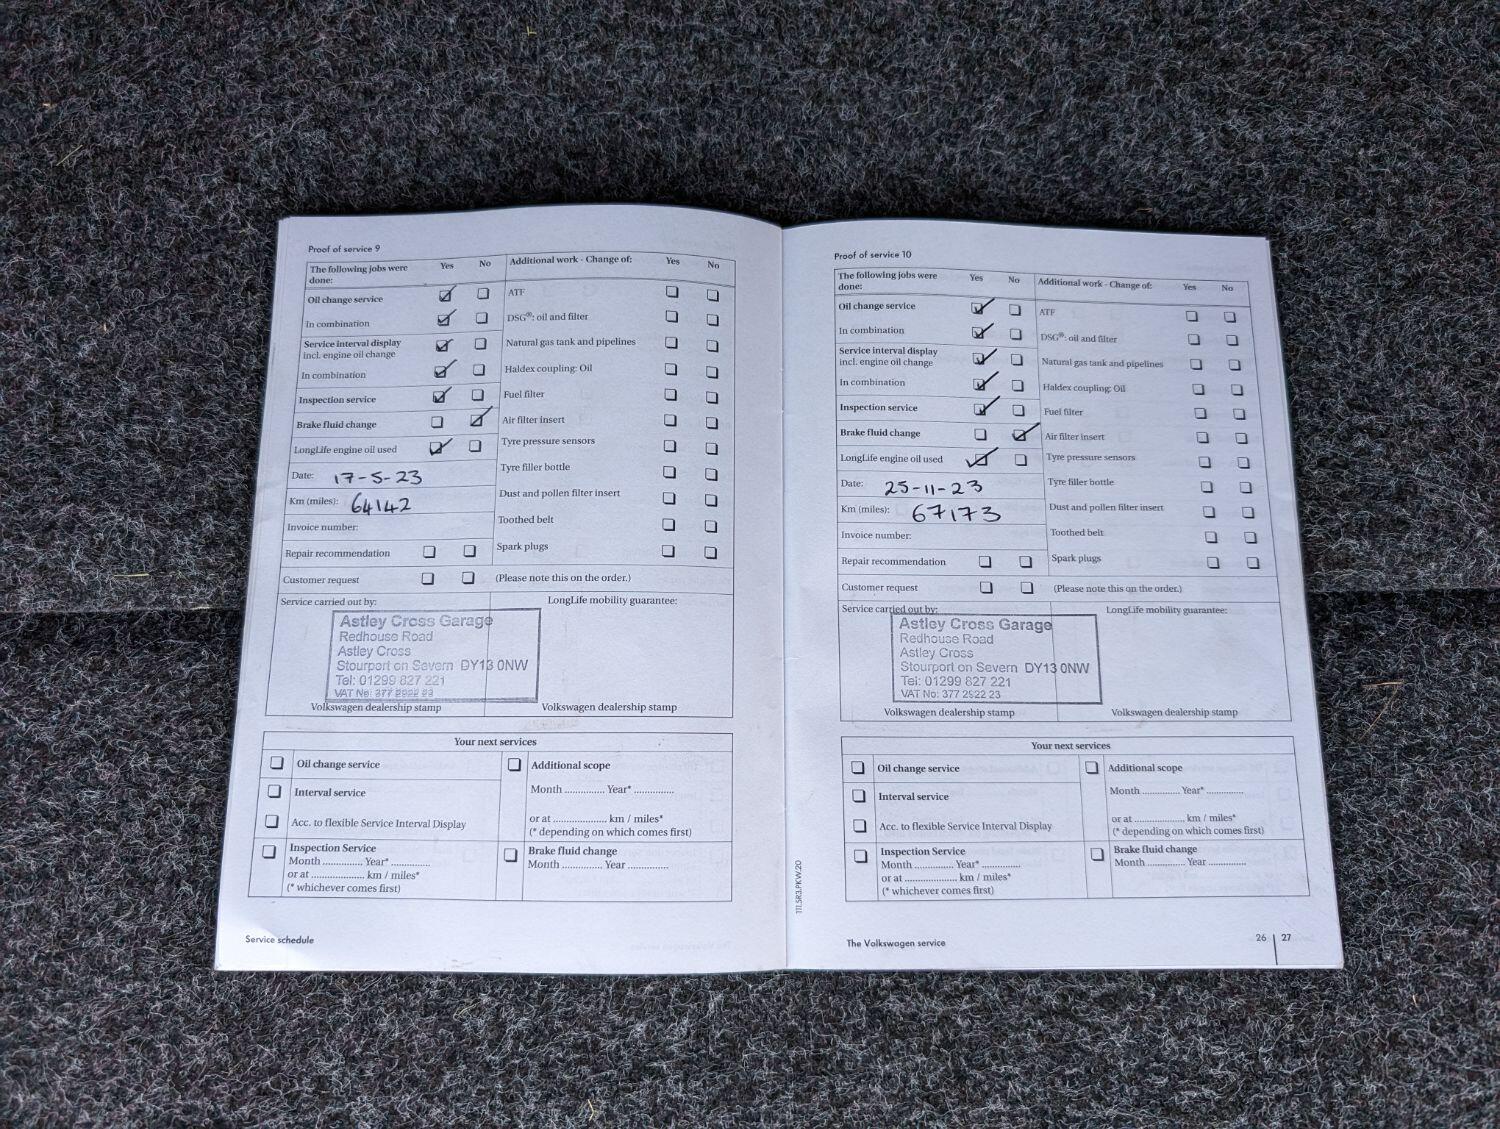 Proof of service 9
The following jobs were done: Yes No Additional work - Change of: Yes No
Oil change service
ATF
In combination
DSG®: oil and filter
Service interval display
incl. engine oil change
Natural gas tank and pipelines
In combination
Haldex coupling: Oil
Inspection service
Fuel filter
Brake fluid change
Air filter insert
LongLife engine oil used
Tyre pressure sensors
Date: 17-5-23
Tyre filler bottle
Km (miles): 64142
Dust and pollen filter insert
Invoice number:
Toothed belt
Repair recommendation
Spark plugs
Customer request
(Please note this on the order.)
Service carried out by:
LongLife mobility guarantee:
Astley Cross Garage
Redhouse Road
Astley Cross
Stourport on Severn DY13 0NW
Tel: 01299 827 221
VAT No: 377 2922 23
Volkswagen dealership stamp
Volkswagen dealership stamp
Your next services
Oil change service
Additional scope
Interval service
Month ............... Year* ...............
Acc. to flexible Service Interval Display
or at .................... km / miles*
(* depending on which comes first)
Inspection Service
Month ............... Year* ...............
or at .................... km / miles*
(* whichever comes first)
Brake fluid change
Month ............... Year ...............
Service schedule
Proof of service 10
The following jobs were done: Yes No Additional work - Change of: Yes No
Oil change service
ATF
In combination
DSG®: oil and filter
Service interval display
incl. engine oil change
Natural gas tank and pipelines
In combination
Haldex coupling: Oil
Inspection service
Fuel filter
Brake fluid change
Air filter insert
LongLife engine oil used
Tyre pressure sensors
Date: 25-11-23
Tyre filler bottle
Km (miles): 67173
Dust and pollen filter insert
Invoice number:
Toothed belt
Repair recommendation
Spark plugs
Customer request
(Please note this on the order.)
Service carried out by:
LongLife mobility guarantee:
Astley Cross Garage
Redhouse Road
Astley Cross
Stourport on Severn DY13 0NW
Tel: 01299 827 221
VAT No: 377 2922 23
Volkswagen dealership stamp
Volkswagen dealership stamp
Your next services
Oil change service
Additional scope
Interval service
Month ............... Year* ...............
Acc. to flexible Service Interval Display
or at .................... km / miles*
(* depending on which comes first)
Inspection Service
Month ............... Year* ...............
or at .................... km / miles*
(* whichever comes first)
Brake fluid change
Month ............... Year ...............
The Volkswagen service
26 | 27